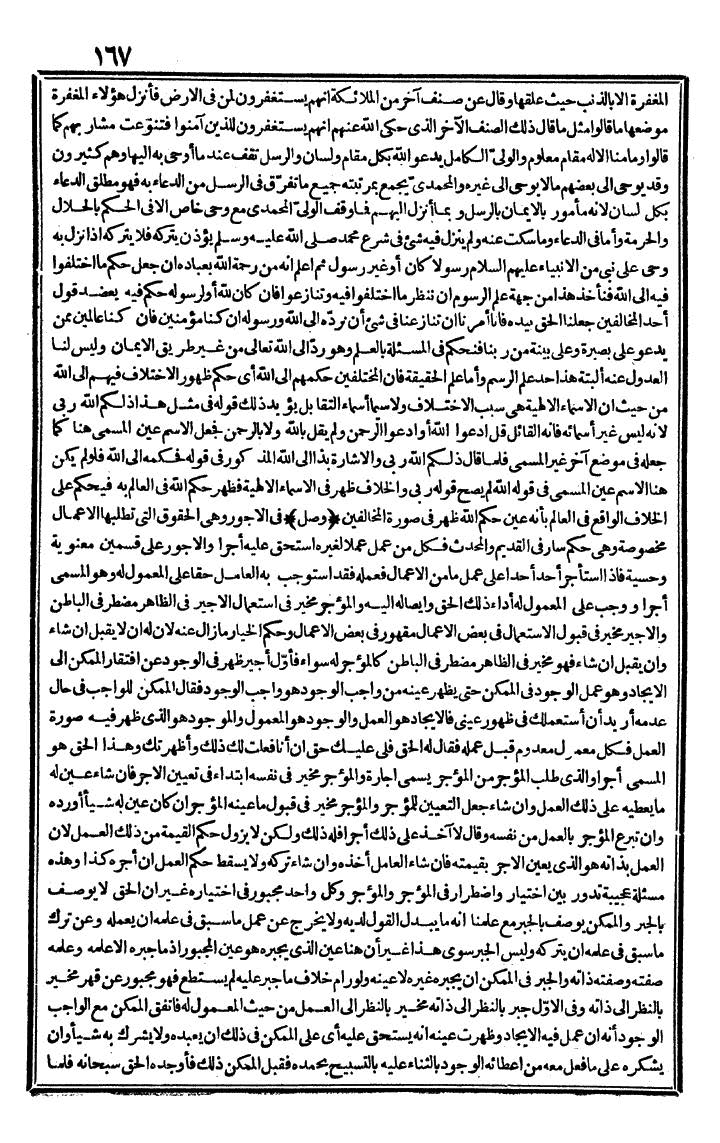 ١٦٧
المغفرة الا بالذنب حيث علقها وقال عن صنف آخر من الملائكة انهم يستغفرون لمن فى الارض فأنزل هؤلاء المغفرة
موضعها ما قالوا مثل ما قال ذلك الصنف الآخر الذى حكى الله عنهم انهم يستغفرون للذين آمنوا فتنوّعت مشاربهم كما
قالوا وما منا الا له مقام معلوم والولىّ الكامل يدعو الله بكل مقام ولسان والرسل تقف عند ما أوحى به اليها وهم كثيرون
وقد يوحى الى بعضهم ما لا يوحى الى غيره والمحمدى يجمع بمرتبته جميع ما تفرّق فى الرسل من الدعاء به فهو مطلق الدعاء
بكل لسان لانه مأمور بالايمان بالرسل وبما أنزل اليهم فما وقف الولىّ المحمدى مع وحى خاص الا فى الحكم بالحلال
والحرمة وأما فى الدعاء وما سكت عنه ولم ينزل فيه شئ فى شرع محمد صلى الله عليه وسلم يؤذن بتركه فلا يتركه اذا نزل به
وحى على نبى من الانبياء عليهم السلام رسولا كان أو غير رسول ثم اعلم انه من رحمة الله بعباده ان جعل حكم ما اختلفوا
فيه الى الله فنأخذ هذا من جهة علم الرسوم ان ننظر ما اختلفوا فيه وتنازعوا فان كان لله أو لرسوله حكم فيه يعضد قول
أحد المخالفين جعلنا الحق بيده فانا أمرنا ان تنازعنا فى شئ أن نردّه الى الله ورسوله ان كنا مؤمنين فان كنا عالمين بمن
يدعو على بصيرة وعلى بينة من ربنا فنحكم فى المسئلة بالعلم وهو ردّ الى الله تعالى من غير طريق الايمان وليس لنا
العدول عنه ألبتة هذا حد علم الرسم وأما علم الحقيقة فان المختلفين حكمهم الى الله أى حكم ظهور الاختلاف فيهم الى الله
من حيث ان الاسماء الالهية هى سبب الاختلاف ولا سيما أسماء التقابل يؤيد ذلك قوله فى مثل هذا ذلكم الله ربى
لانه ليس غير أسمائه فانه القائل قل ادعوا الله أو ادعوا الرحمن ولم يقل بالله ولا بالرحمن فجعل الاسم عين المسمى هنا كما
جعله فى موضع آخر غير المسمى فلما قال ذلكم الله ربى والاشارة بذا الى الله المذكور فى قوله فحكمه الى الله فلو لم يكن
هنا الاسم عين المسمى فى قوله الله لم يصح قوله ربى والخلاف ظهر فى الاسماء الالهية فظهر حكم الله فى العالم به فيحكم على
الخلاف الواقع فى العالم بأنه عين حكم الله ظهر فى صورة المخالفين ﴿وصل﴾ فى الاجور وهى الحقوق التى تطلبها الاعمال
مخصوصة وهى حكم سار فى القديم والمحدث فكل من عمل عملا لغيره استحق عليه أجرا والاجور على قسمين معنوية
وحسية فاذا استأجر أحد أحدا على عمل ما من الاعمال فعمله فقد استوجب به العامل حقا على المعمول له وهو المسمى
أجرا ووجب على المعمول له أداء ذلك الحق وايصاله اليه والمؤجر مخير فى استعمال الاجير فى الظاهر مضطر فى الباطن
والاجير مخير فى قبول الاستعمال فى بعض الاعمال مقهور فى بعض الاعمال وحكم الخيار ما زال عنه لان له ان لا يقبل ان شاء
وان يقبل ان شاء فهو مخير فى الظاهر مضطر فى الباطن كالمؤجر له سواء فأوّل أجير ظهر فى الوجود عن افتقار الممكن الى
الايجاد وهو عمل الوجود فى الممكن حتى يظهر عينه من واجب الوجود هو واجب الوجود فقال الممكن للواجب فى حال
عدمه أريد أن أستعملك فى ظهور عينى فالايجاد هو العمل والوجود هو المعمول والموجود هو الذى ظهر فيه صورة
العمل فكل معمول معدوم قبل عمله فقال له الحق فلى عليك حق ان أنا فعلت لك ذلك وأظهرتك وهذا الحق هو
المسمى أجرا والذى طلب المؤجر من المؤجر يسمى اجارة والمؤجر مخير فى نفسه ابتداء فى تعيين الاجر فان شاء عين له
ما يعطيه على ذلك العمل وان شاء جعل التعيين للمؤجر والمؤجر مخير فى قبول ما عينه المؤجر ان كان عين له شيأ أو رده
وان تبرع المؤجر بالعمل من نفسه وقال لا آخذ على ذلك أجرا فله ذلك ولكن لا يزول حكم القيمة من ذلك العمل لان
العمل بذاته هو الذى يعين الاجر بقيمته فان شاء العامل أخذه وان شاء تركه ولا يسقط حكم العمل ان أجره كذا وهذه
مسئلة عجيبة تدور بين اختيار واضطرار فى المؤجر والمؤجر وكل واحد مجبور فى اختياره غير ان الحق لا يوصف
بالجبر والممكن يوصف بالجبر مع علمنا انه ما يبدل القول لديه ولا يخرج عن عمل ما سبق فى علمه ان يعمله وعن ترك
ما سبق فى علمه ان يتركه وليس الجبر سوى هذا غير أن هنا عين الذى يجبره هو عين المجبور اذ ما جبره الا علمه وعلمه
صفته وصفته ذاته والجبر فى الممكن ان يجبره غيره لا عينه ولو رام خلاف ما جبر عليه لم يستطع فهو مجبور عن قهر مخير
بالنظر الى ذاته وفى الاوّل جبر بالنظر الى ذاته مخير بالنظر الى العمل من حيث المعمول له فاتفق الممكن مع الواجب
الوجود أنه ان عمل فيه الايجاد وظهرت عينه انه يستحق عليه أى على الممكن فى ذلك ان يعبده ولا يشرك به شيأ وان
يشكره على ما فعل معه من اعطائه الوجود بالثناء عليه بالتسبيح بحمده فقبل الممكن ذلك فأوجده الحق سبحانه فلما